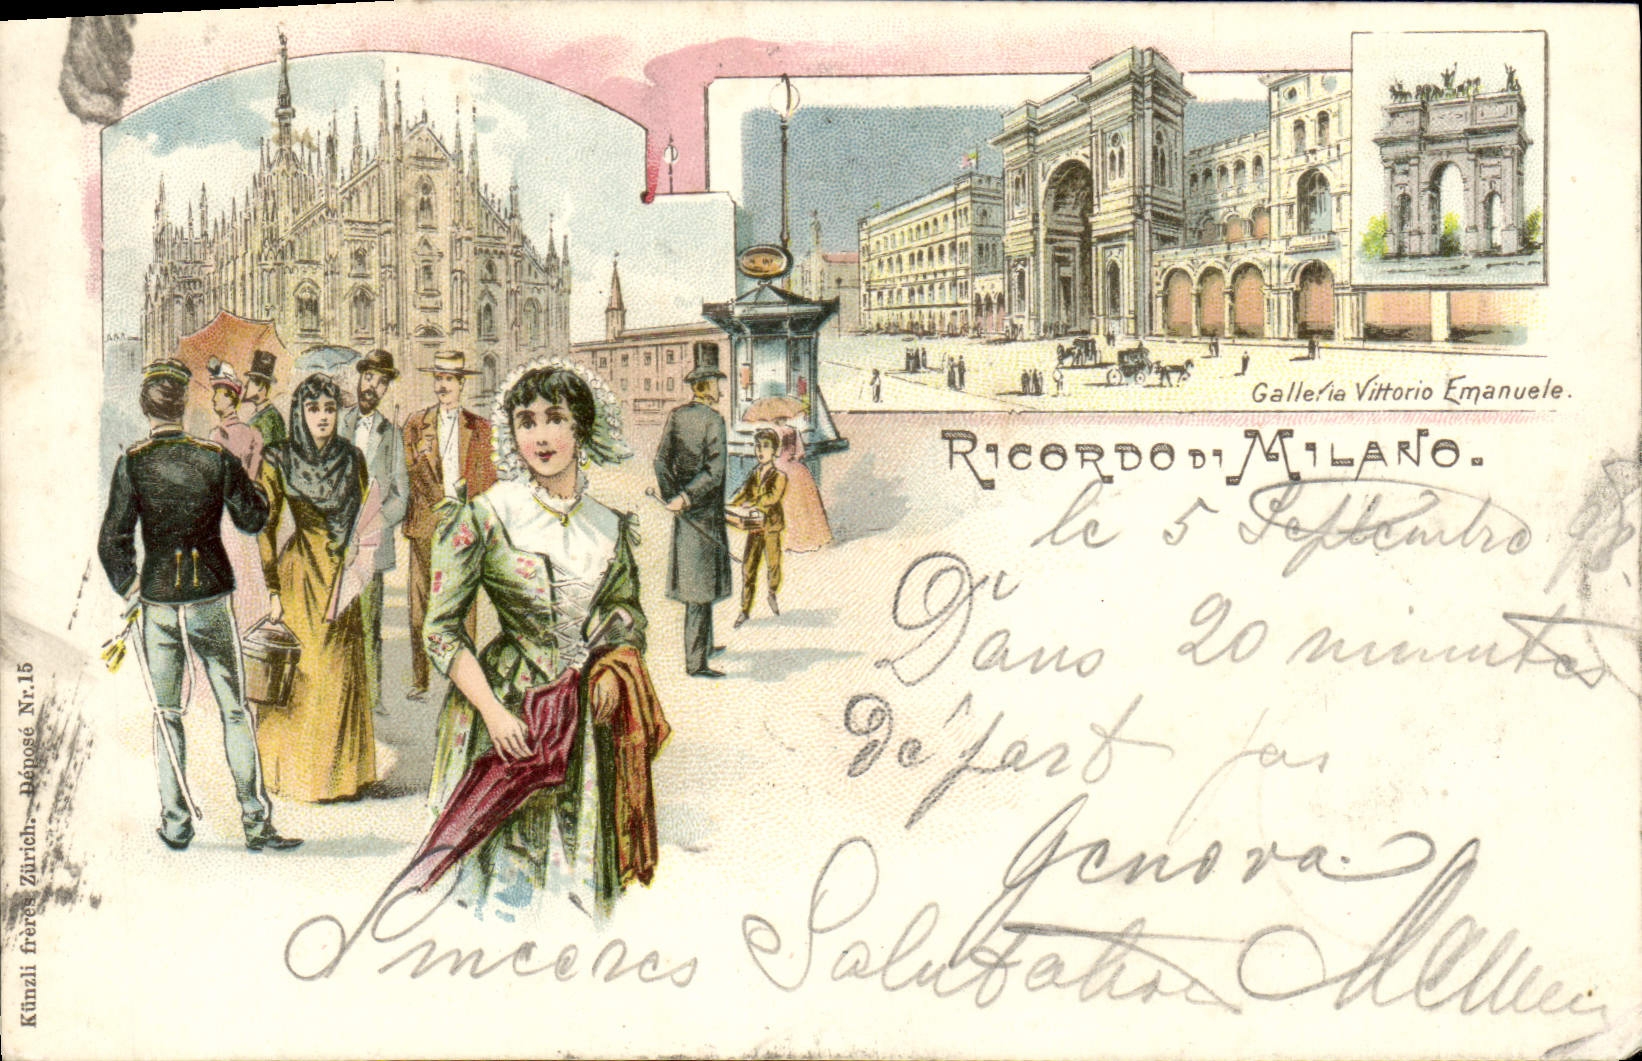 Galleria Vittorio Emanuele.
RICORDO DI MILANO.
le 5 Septembre 98.
Dans 20 minutes
départ par
Genova.
Sinceres Salutations
Künzli frères Zürich. Déposé Nr. 15